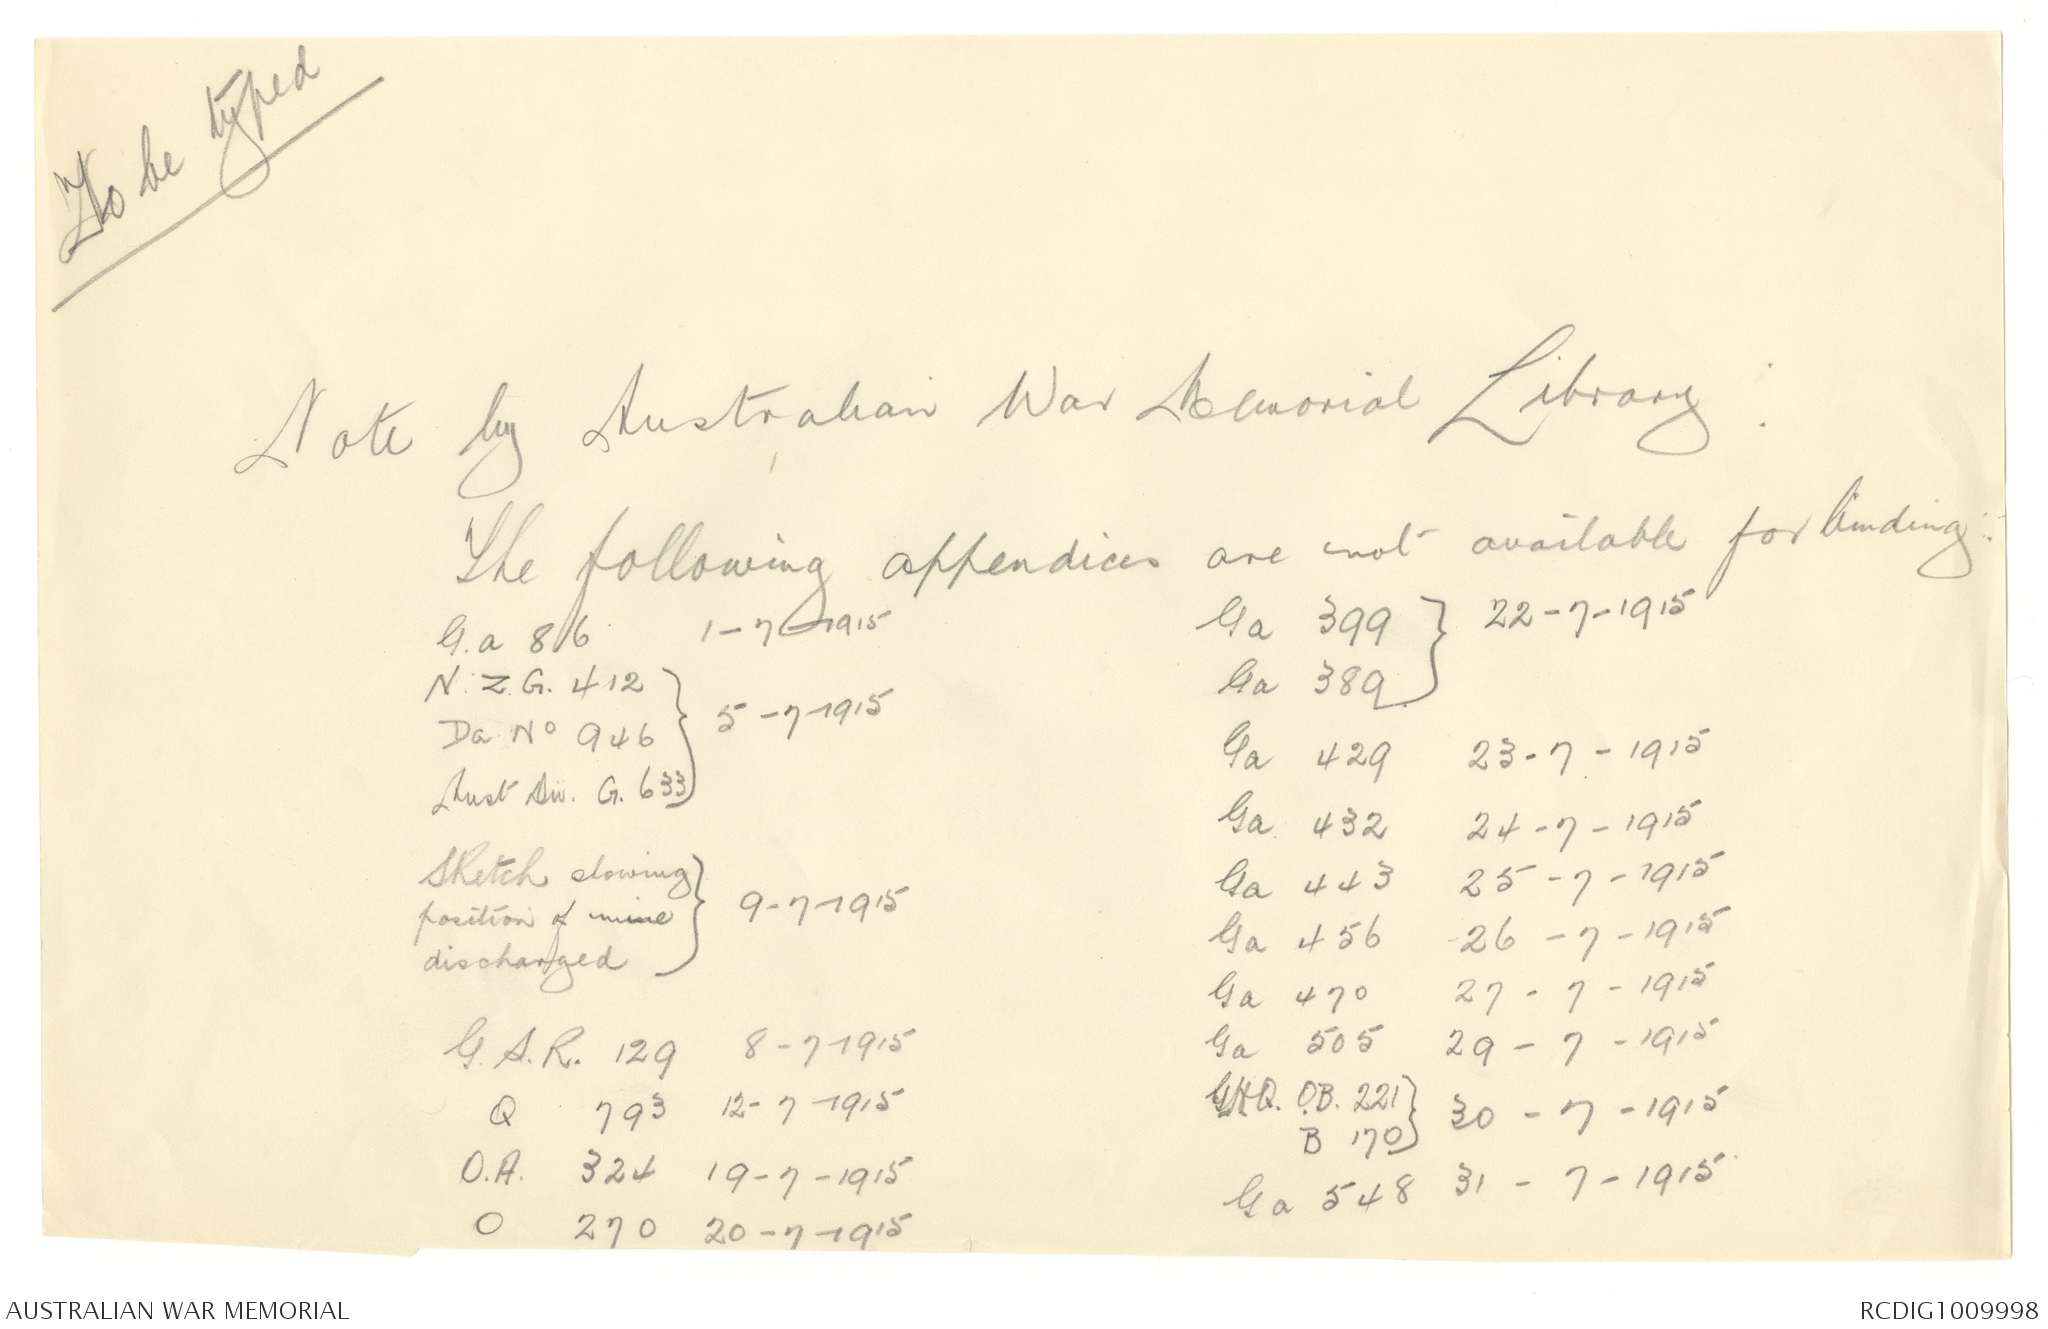 To be typed
Note by Australian War Memorial Library :
The following appendices are not available for binding :-
G.a 86 1-7-1915
N.Z.G. 412 } 5-7-1915
Da No 946
Aust Div. G. 633
Sketch showing } 9-7-1915
position of mine
discharged
G.S.R. 129 8-7-1915
Q 793 12-7-1915
O.A. 324 19-7-1915
O 270 20-7-1915
Ga 399 } 22-7-1915
Ga 389
Ga 429 23-7-1915
Ga 432 24-7-1915
Ga 443 25-7-1915
Ga 456 26-7-1915
Ga 470 27-7-1915
Ga 505 29-7-1915
GHQ. OB. 221 } 30-7-1915
B 170
Ga 548 31-7-1915
AUSTRALIAN WAR MEMORIAL
RCDIG1009998